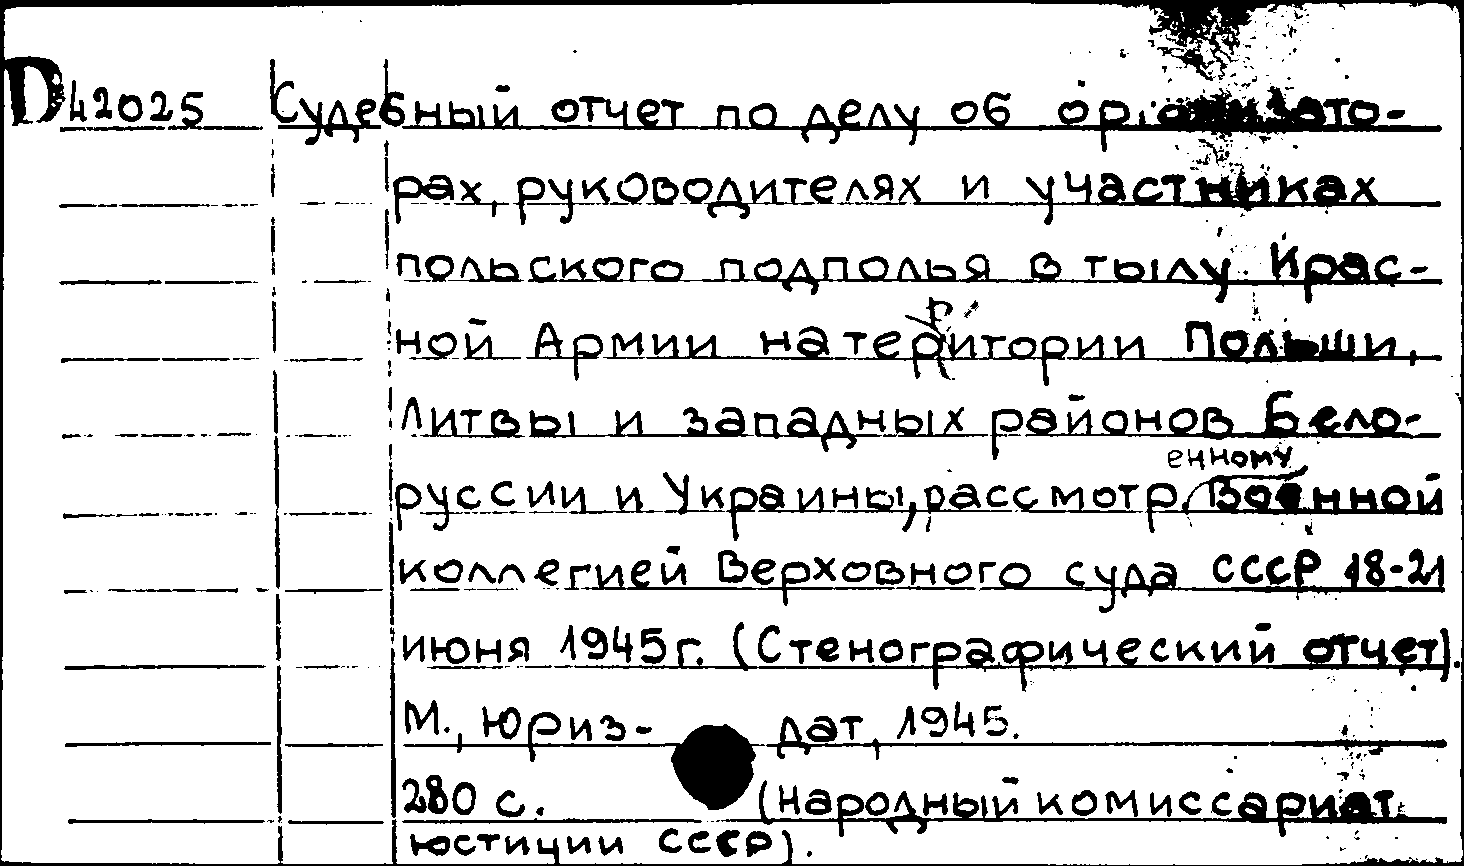 D42025 Судебный отчет по делу об организато-
рах, руководителях и участниках
польского подполья в тылу Крас-
ной Армии на территории Польши,
Литвы и западных районов Бело-
енному
руссии и Украины, рассмотр. Военной
коллегией Верховного суда СССР 18-21
июня 1945г. (Стенографический отчет).
М., Юриз- дат, 1945.
280 с. (Народный комиссариат
юстиции СССР).